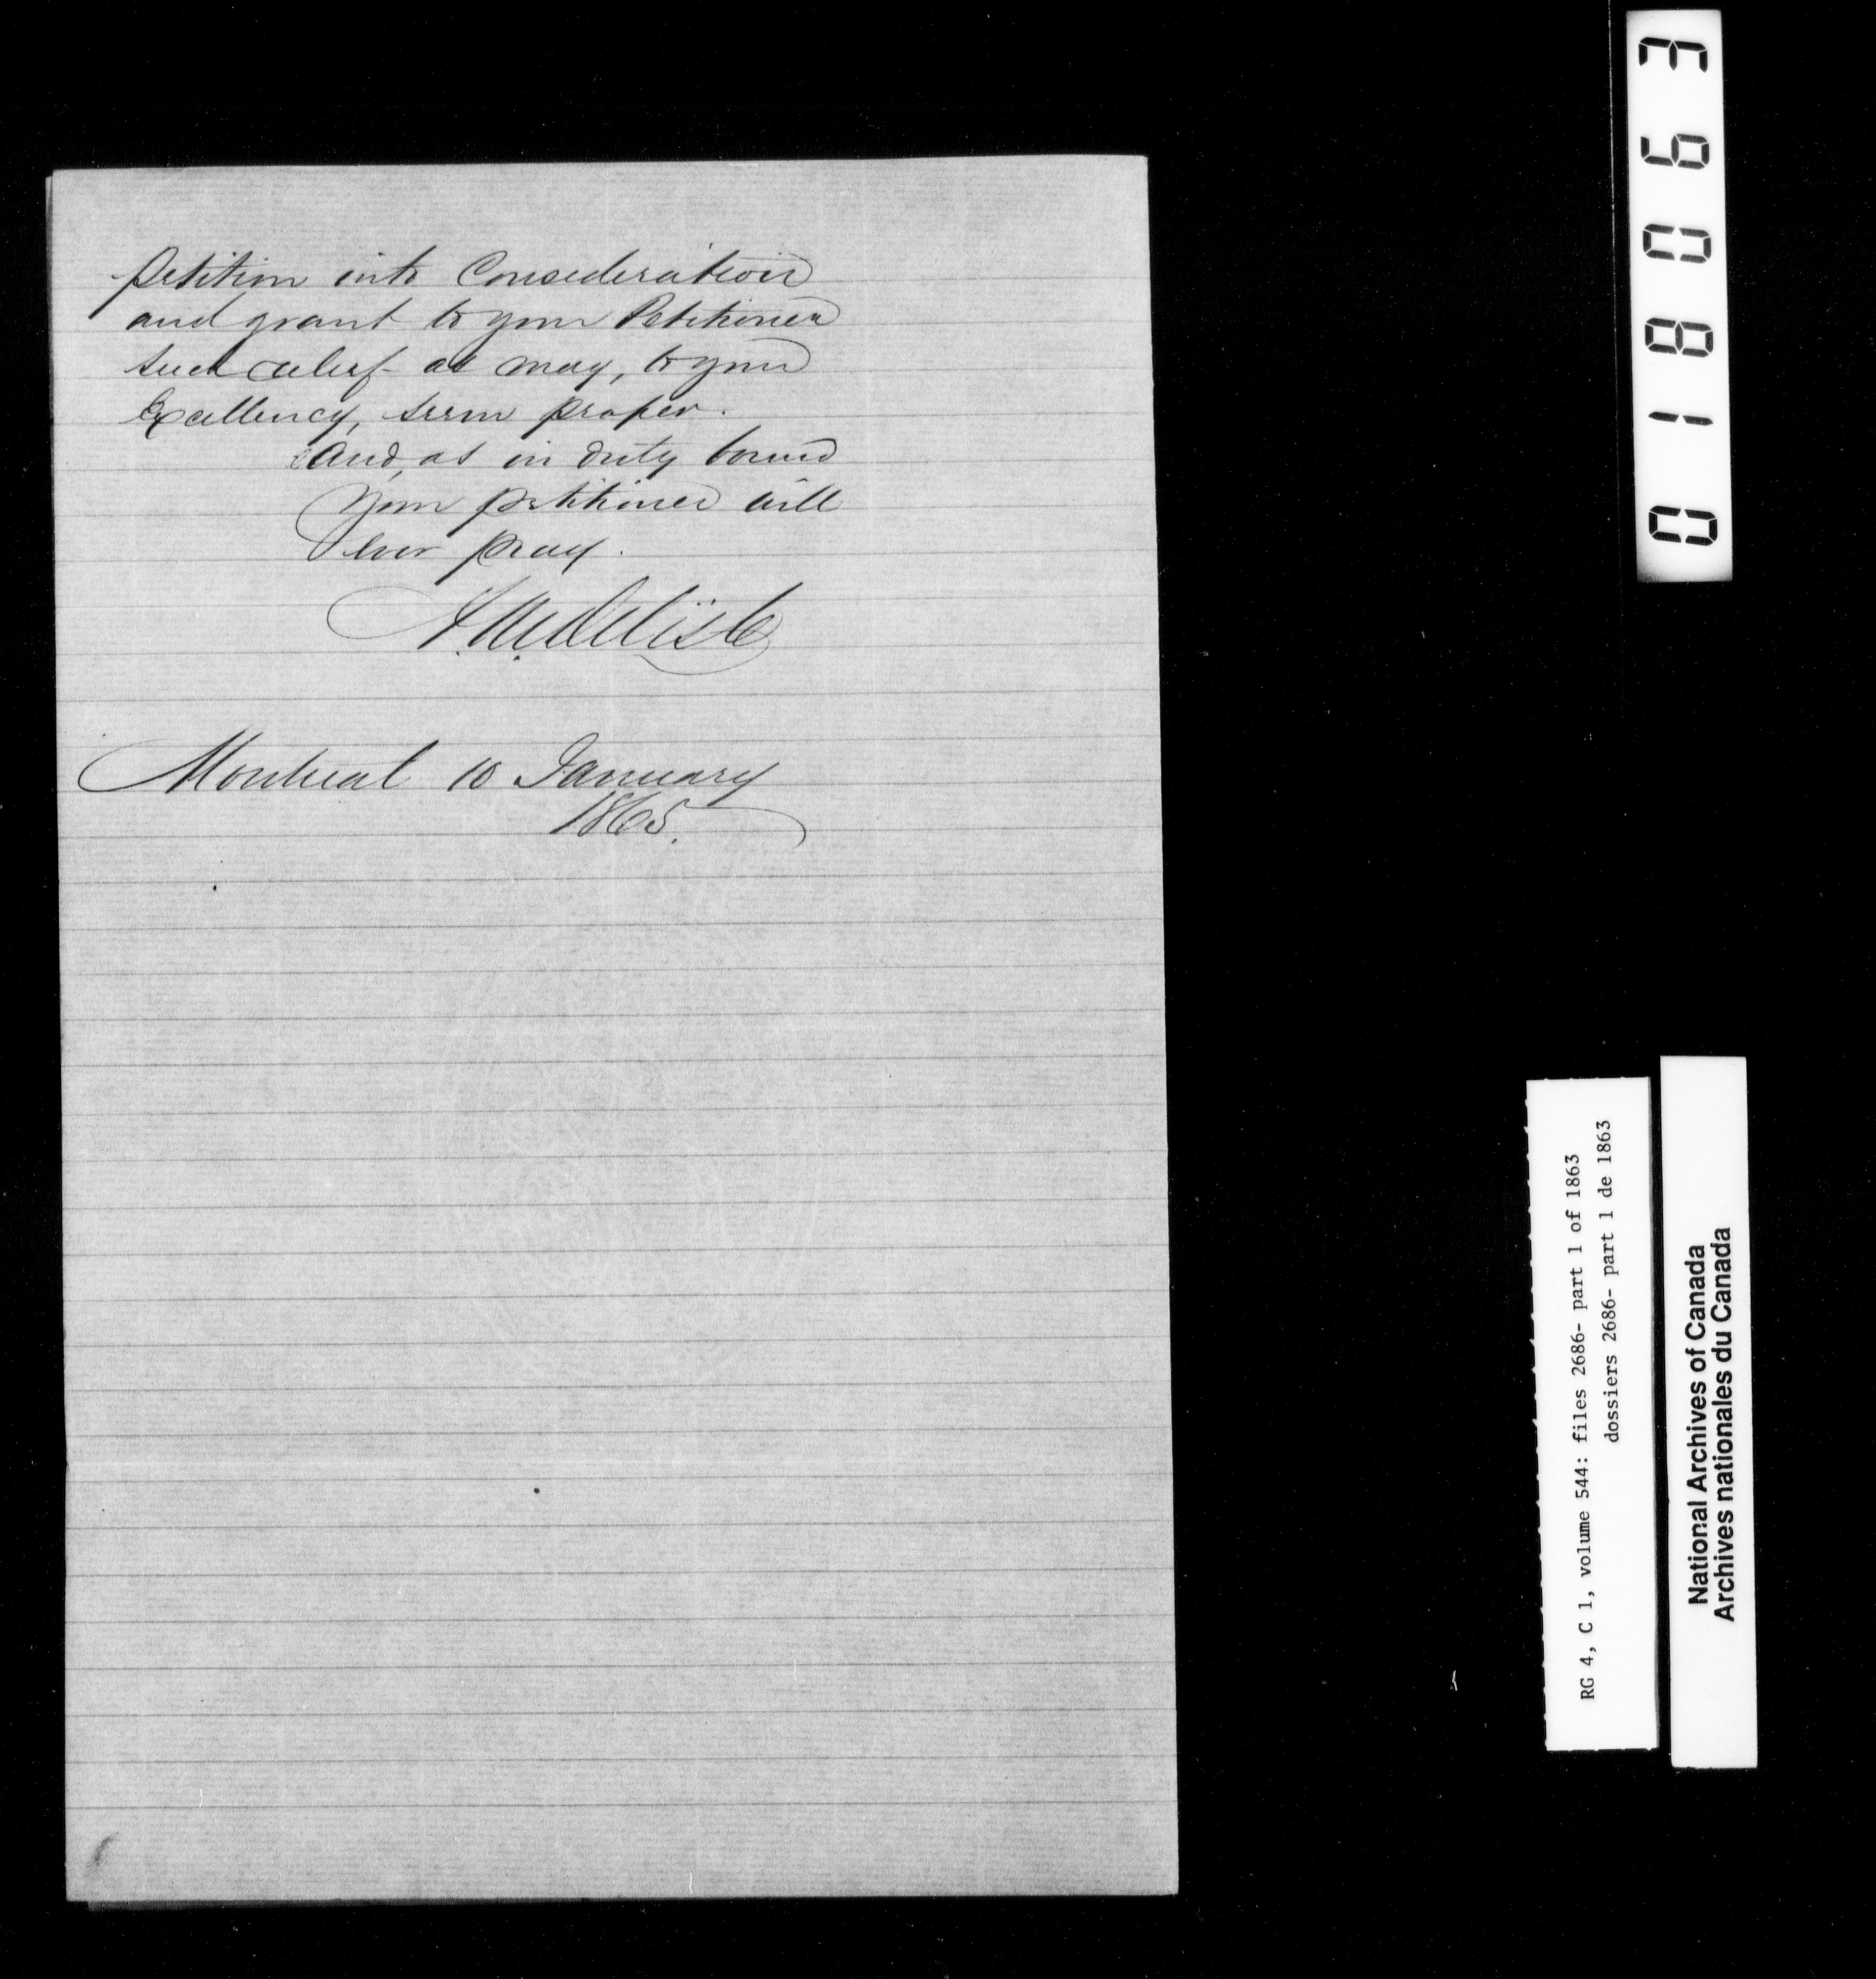 petition into Consideration
and grant to your Petitioner
such relief as may, to your
Excellency, seem proper.
And, as in duty bound
Your petitioner will
ever pray.
A. M. Delisle
Montreal 10 January
1865.
018063
RG 4, C 1, volume 544: files 2686- part 1 of 1863
dossiers 2686- part 1 de 1863
National Archives of Canada
Archives nationales du Canada